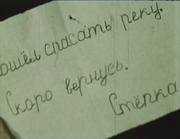 ошёл спасать реку.
Скоро вернусь.
Стёпка